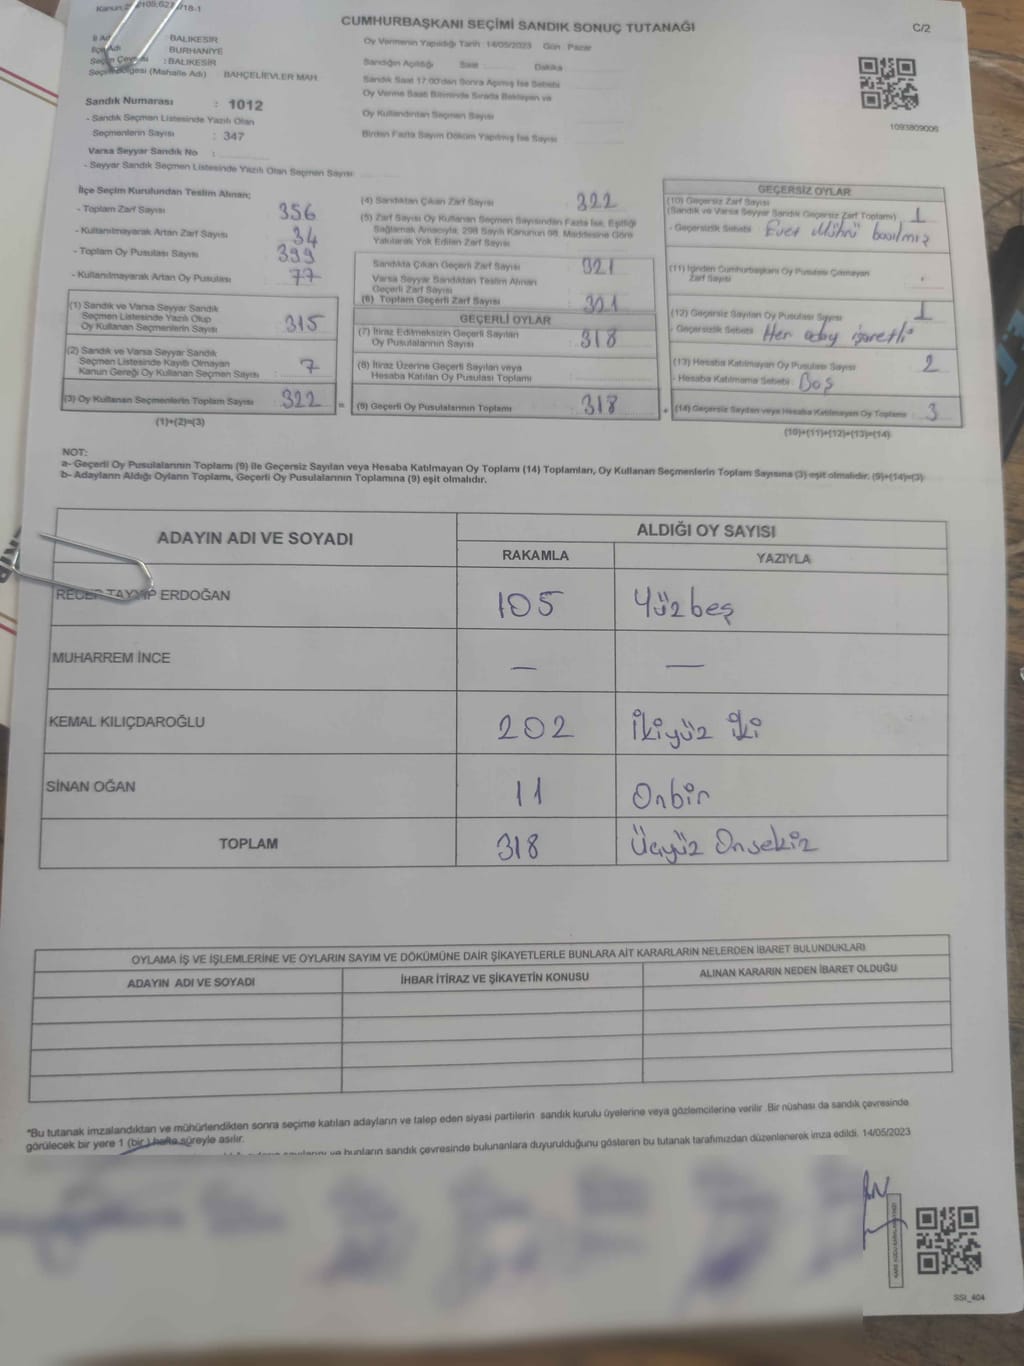 CUMHURBAŞKANI SEÇİMİ SANDIK SONUÇ TUTANAĞI
C/2
İl Adı BALIKESİR
İlçe Adı BURHANİYE
Seçim Çevresi : BALIKESİR
Seçim Bölgesi (Mahalle Adı) : BAHÇELİEVLER MAH.
Sandık Numarası : 1012
- Sandık Seçmen Listesinde Yazılı Olan
Seçmenlerin Sayısı : 347
Varsa Seyyar Sandık No :
- Seyyar Sandık Seçmen Listesinde Yazılı Olan Seçmen Sayısı
Oy Vermenin Yapıldığı Tarih : 14/05/2023 Gün : Pazar
Sandığın Açıldığı Saat Dakika
Sandık Saat 17:00'den Sonra Açılmış İse Sebebi
Oy Verme Saati Bitiminde Sırada Bekleyen ve
Oy Kullandırılan Seçmen Sayısı
Birden Fazla Sayım Döküm Yapılmış İse Sayısı
1093809006
İlçe Seçim Kurulundan Teslim Alınan;
- Toplam Zarf Sayısı 356
- Kullanılmayarak Artan Zarf Sayısı 34
- Toplam Oy Pusulası Sayısı 399
- Kullanılmayarak Artan Oy Pusulası 77
(1) Sandık ve Varsa Seyyar Sandık
Seçmen Listesinde Yazılı Olup
Oy Kullanan Seçmenlerin Sayısı 315
(2) Sandık ve Varsa Seyyar Sandık
Seçmen Listesinde Kayıtlı Olmayan
Kanun Gereği Oy Kullanan Seçmen Sayısı : 7
(3) Oy Kullanan Seçmenlerin Toplam Sayısı 322 =
(1)+(2)=(3)
(4) Sandıktan Çıkan Zarf Sayısı 322
(5) Zarf Sayısı Oy Kullanan Seçmen Sayısından Fazla İse, Eşitliği
Sağlamak Amacıyla, 298 Sayılı Kanunun 98. Maddesine Göre
Yakılarak Yok Edilen Zarf Sayısı
Sandıkta Çıkan Geçerli Zarf Sayısı 321
Varsa Seyyar Sandıktan Teslim Alınan
Geçerli Zarf Sayısı
(6) Toplam Geçerli Zarf Sayısı : 321
GEÇERLİ OYLAR
(7) İtiraz Edilmeksizin Geçerli Sayılan
Oy Pusulalarının Sayısı : 318
(8) İtiraz Üzerine Geçerli Sayılan veya
Hesaba Katılan Oy Pusulası Toplamı
(9) Geçerli Oy Pusulalarının Toplamı : 318 +
GEÇERSİZ OYLAR
(10) Geçersiz Zarf Sayısı
(Sandık ve Varsa Seyyar Sandık Geçersiz Zarf Toplamı) : 1
- Geçersizlik Sebebi : Evet Mührü basılmış
(11) İçinden Cumhurbaşkanı Oy Pusulası Çıkmayan
Zarf Sayısı
(12) Geçersiz Sayılan Oy Pusulası Sayısı 1
- Geçersizlik Sebebi : Her aday işaretli
(13) Hesaba Katılmayan Oy Pusulası Sayısı 2
- Hesaba Katılmama Sebebi : Boş
(14) Geçersiz Sayılan veya Hesaba Katılmayan Oy Toplamı : 3
(10)+(11)+(12)+(13)=(14)
NOT:
a- Geçerli Oy Pusulalarının Toplamı (9) ile Geçersiz Sayılan veya Hesaba Katılmayan Oy Toplamı (14) Toplamları, Oy Kullanan Seçmenlerin Toplam Sayısına (3) eşit olmalıdır. (9)+(14)=(3)
b- Adayların Aldığı Oyların Toplamı, Geçerli Oy Pusulalarının Toplamına (9) eşit olmalıdır.
ADAYIN ADI VE SOYADI
ALDIĞI OY SAYISI
RAKAMLA YAZIYLA
RECEP TAYYİP ERDOĞAN 105 Yüzbeş
MUHARREM İNCE — —
KEMAL KILIÇDAROĞLU 202 İkiyüz iki
SİNAN OĞAN 11 Onbir
TOPLAM 318 Üçyüz Onsekiz
OYLAMA İŞ VE İŞLEMLERİNE VE OYLARIN SAYIM VE DÖKÜMÜNE DAİR ŞİKAYETLERLE BUNLARA AİT KARARLARIN NELERDEN İBARET BULUNDUKLARI
ADAYIN ADI VE SOYADI İHBAR İTİRAZ VE ŞİKAYETİN KONUSU ALINAN KARARIN NEDEN İBARET OLDUĞU
*Bu tutanak imzalandıktan ve mühürlendikten sonra seçime katılan adayların ve talep eden siyasi partilerin sandık kurulu üyelerine veya gözlemcilerine verilir. Bir nüshası da sandık çevresinde
görülecek bir yere 1 (bir) hafta süreyle asılır.
ve bunların sandık çevresinde bulunanlara duyurulduğunu gösteren bu tutanak tarafımızdan düzenlenerek imza edildi. 14/05/2023
SSI_404